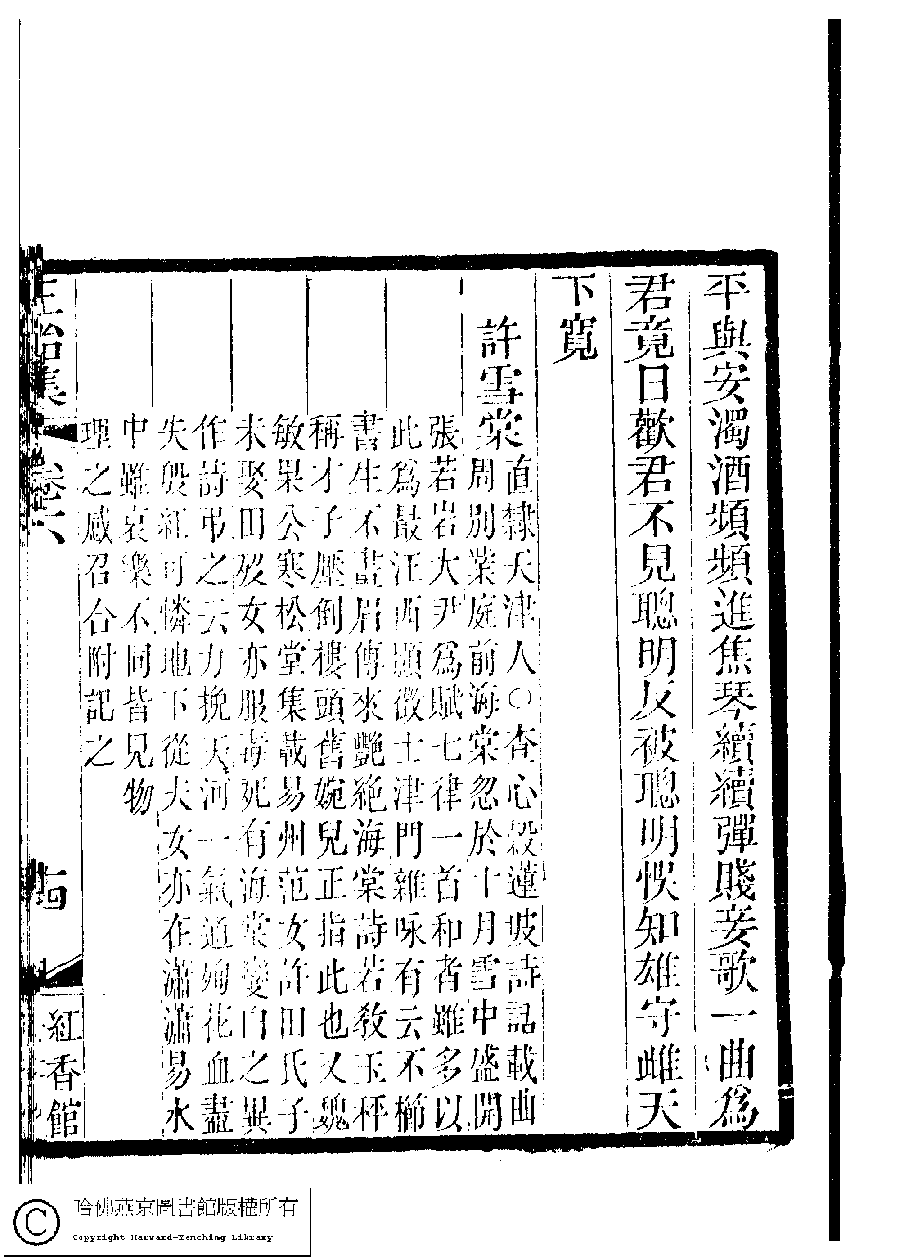 平與安濁酒頻頻進焦琴續續彈賤妾歌一曲爲
君竟日歡君不見聰明反被聰明悞知雄守雌天
下寬
許雪棠
直隸天津人○查心穀蓮坡詩話載曲
周別業庭前海棠忽於十月雪中盛開
張若岩大尹爲賦七律一首和者雖多以
此爲最汪西顥徵士津門雜咏有云不櫛
書生不畫眉傳來艷絶海棠詩若教玉秤
稱才子壓倒樓頭舊婉兒正指此也又魏
敏果公寒松堂集載易州范女許田氏子
未娶田歿女亦服毒死有海棠變白之異
作詩弔之云力挽天河一氣通殉花血盡
失殷紅可憐地下從夫女亦在瀟瀟易水
中雖哀樂不同皆見物
理之感召合附記之
正始集
卷六
十四
紅香館
哈佛燕京圖書館版權所有
Copyright Harvard-Yenching Library